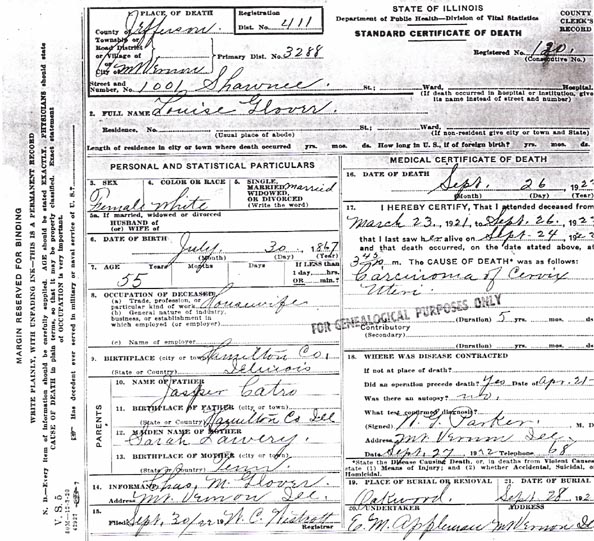 STATE OF ILLINOIS
Department of Public Health—Division of Vital Statistics
STANDARD CERTIFICATE OF DEATH
COUNTY CLERK'S RECORD
Registered No. 130
(Consecutive No.)
PLACE OF DEATH
County of Jefferson
Registration Dist. No. 411
Township or Road District or Village of or City of Mt Vernon
Primary Dist. No. 3288
Street and Number, No. 1001 Shawnee St.; Ward, Hospital
(If death occurred in hospital or institution, give its name instead of street and number)
2. FULL NAME Louise Glover.
Residence, No. St.; Ward,
(Usual place of abode) (If non-resident give city or town and State)
Length of residence in city or town where death occurred yrs. mos. ds. How long in U. S., if of foreign birth? yrs. mos. ds.
PERSONAL AND STATISTICAL PARTICULARS
3. SEX Female
4. COLOR OR RACE White
5. SINGLE, MARRIED, WIDOWED, OR DIVORCED (Write the word) married
5a. If married, widowed or divorced
HUSBAND of
(or) WIFE of
6. DATE OF BIRTH July 30 1867
(Month) (Day) (Year)
7. AGE 55 Years Months Days If LESS than 1 day, hrs. OR min.?
8. OCCUPATION OF DECEASED
(a) Trade, profession, or particular kind of work Housewife
(b) General nature of industry, business, or establishment in which employed (or employer)
(c) Name of employer
9. BIRTHPLACE (city or town) Hamilton Co.
(State or Country) Illinois
PARENTS
10. NAME OF FATHER
Jasper Catro
11. BIRTHPLACE OF FATHER (city or town)
(State or Country) Hamilton Co Ill
12. MAIDEN NAME OF MOTHER
Sarah Lowery.
13. BIRTHPLACE OF MOTHER (city or town)
(State or Country) Tenn.
14. INFORMANT Chas. M. Glover.
Address Mt. Vernon Ill.
15. Filed Sept. 30/22 W. C.
Registrar
MEDICAL CERTIFICATE OF DEATH
16. DATE OF DEATH
Sept. 26 192
(Month) (Day) (Year)
17. I HEREBY CERTIFY, That I attended deceased from
March 23, 1921 to Sept. 26 192
that I last saw her alive on Sept. 24
and that death occurred, on the date stated above, at
m. The CAUSE OF DEATH* was as follows:
Carcinoma of Cervix
Uteri.
FOR GENEALOGICAL PURPOSES ONLY
(Duration) 5 yrs. mos. ds.
Contributory
(Secondary)
(Duration) yrs. mos. ds.
18. WHERE WAS DISEASE CONTRACTED
If not at place of death?
Did an operation precede death? Yes Date of Apr. 21-
Was there an autopsy? no.
What test confirmed diagnosis?
(Signed) Parker. M. D.
Address Mt Vernon Ill.
Date Sept. 27 1922 Telephone 68
*State the Disease Causing Death, or, in deaths from Violent Causes state (1) Means of Injury; and (2) whether Accidental, Suicidal, or Homicidal
19. PLACE OF BURIAL OR REMOVAL
Oakwood.
21. DATE OF BURIAL
Sept. 28 192
20. UNDERTAKER
E. M. Appleman Mt Vernon Ill
MARGIN RESERVED FOR BINDING
WRITE PLAINLY, WITH UNFADING INK—THIS IS A PERMANENT RECORD
N. B.—Every item of information should be carefully supplied. AGE should be stated EXACTLY. PHYSICIANS should state
CAUSE OF DEATH in plain terms, so that it may be properly classified. Exact statement
of OCCUPATION is very important.
Has decedent ever served in military or naval service of U. S.?